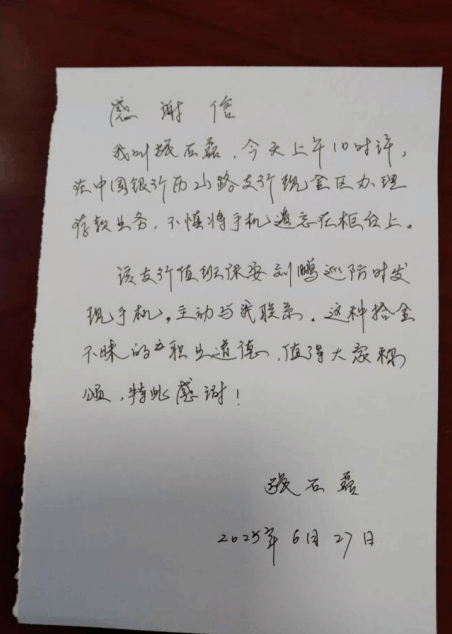 感谢信
我叫张石磊，今天上午10时许，
在中国银行历山路支行现金区办理
存款业务，不慎将手机遗忘在柜台上。
该支行值班保安刘鹏巡防时发
现手机，主动与我联系。这种拾金
不昧的职业道德，值得大家称
颂，特此感谢！
张石磊
2025年6月27日